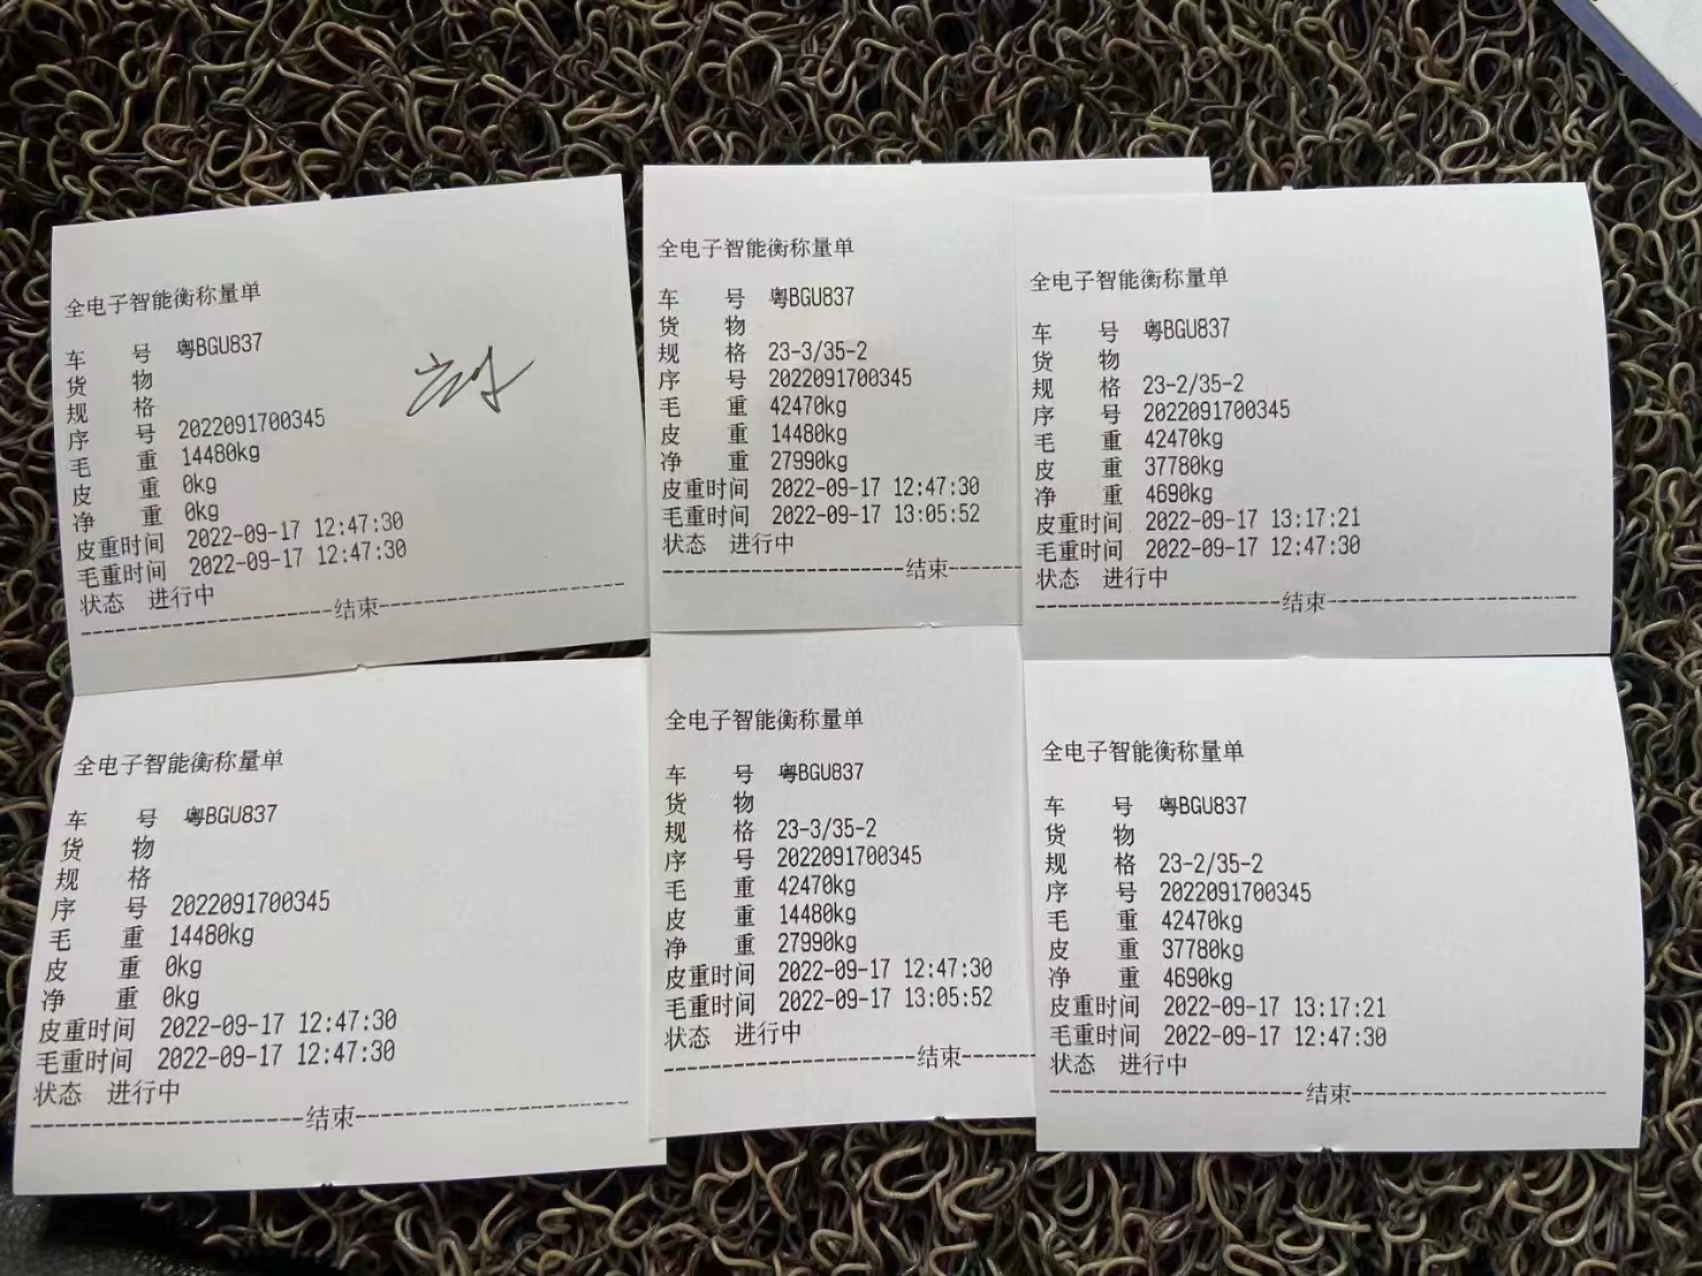 全电子智能衡称量单
车 号 粤BGU837
货 物
规 格
序 号 2022091700345
毛 重 14480kg
皮 重 0kg
净 重 0kg
皮重时间 2022-09-17 12:47:30
毛重时间 2022-09-17 12:47:30
状态 进行中
--------结束--------
全电子智能衡称量单
车 号 粤BGU837
货 物
规 格 23-3/35-2
序 号 2022091700345
毛 重 42470kg
皮 重 14480kg
净 重 27990kg
皮重时间 2022-09-17 12:47:30
毛重时间 2022-09-17 13:05:52
状态 进行中
--------结束--------
全电子智能衡称量单
车 号 粤BGU837
货 物
规 格 23-2/35-2
序 号 2022091700345
毛 重 42470kg
皮 重 37780kg
净 重 4690kg
皮重时间 2022-09-17 13:17:21
毛重时间 2022-09-17 12:47:30
状态 进行中
--------结束--------
全电子智能衡称量单
车 号 粤BGU837
货 物
规 格
序 号 2022091700345
毛 重 14480kg
皮 重 0kg
净 重 0kg
皮重时间 2022-09-17 12:47:30
毛重时间 2022-09-17 12:47:30
状态 进行中
--------结束--------
全电子智能衡称量单
车 号 粤BGU837
货 物
规 格 23-3/35-2
序 号 2022091700345
毛 重 42470kg
皮 重 14480kg
净 重 27990kg
皮重时间 2022-09-17 12:47:30
毛重时间 2022-09-17 13:05:52
状态 进行中
--------结束--------
全电子智能衡称量单
车 号 粤BGU837
货 物
规 格 23-2/35-2
序 号 2022091700345
毛 重 42470kg
皮 重 37780kg
净 重 4690kg
皮重时间 2022-09-17 13:17:21
毛重时间 2022-09-17 12:47:30
状态 进行中
--------结束--------